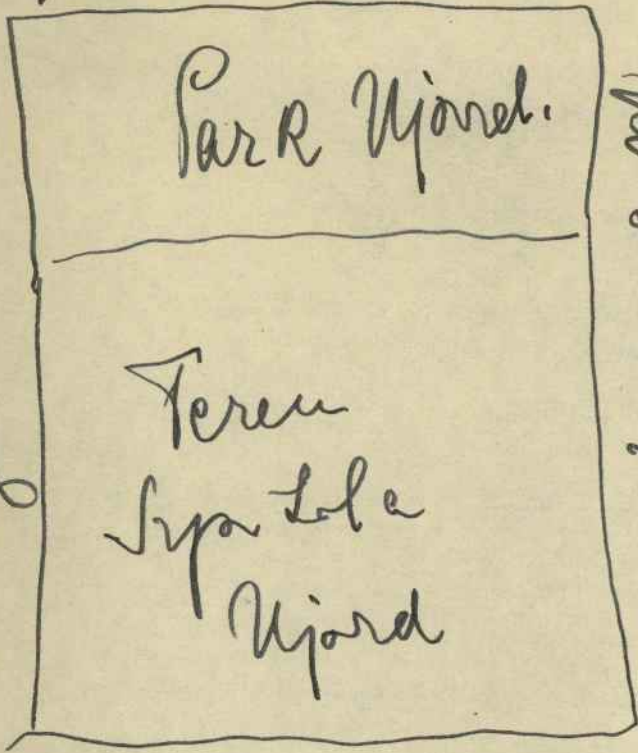 Park Ujazd.
Teren
Szpitala
Ujazd